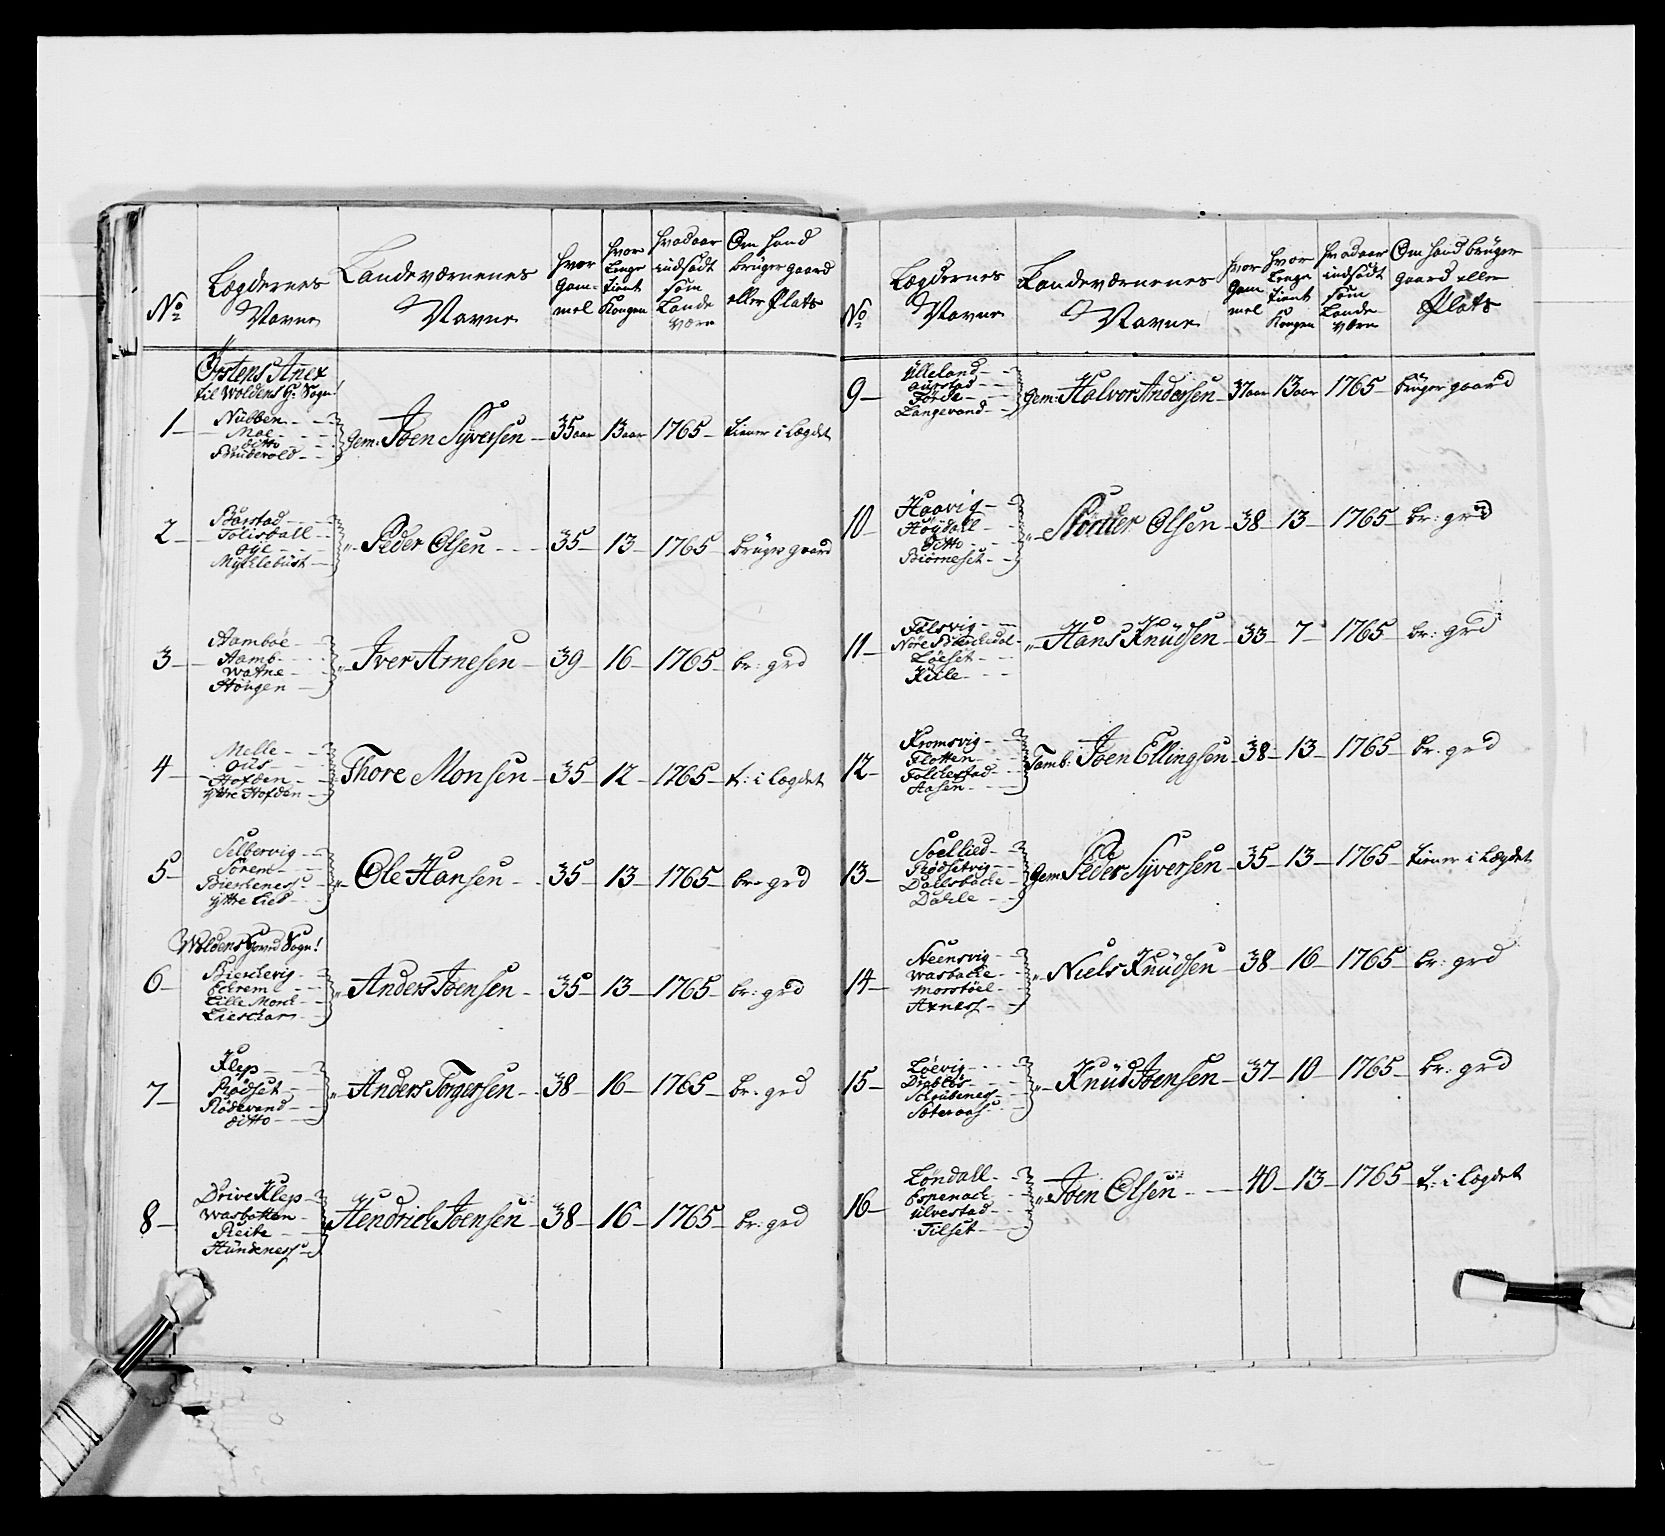 No
Lægdernes
Navne
Landeværnenes
Navne
hvor
gam-
mel
hvor
Lenge
tient
Kongen
hvad aar
indsadt
som
Lande
værn
Om hand
bruger gaard
eller Plats
Örstens Anex
til Woldens G: Sogn!
1 — Nübben
Moe
ditto
Gem: Joen Syversen — 35 aar 13 aar 1765 — tiener i Lægdet
2 — Barstad
Folisdall
oÿe
Mÿchlebust
" Peder Olsen — 35 — 13 — 1765 bruger gaard
3 — Aamboe
Aamb
Watne
Hougen
" Iver Arnesen — 39 16 — 1765 — br: grd
4 — Melle
ous
Hofden
ÿttre Hofden
Thore Monsen — 35 — 12 — 1765 — t: i Lægdet
5 — Selbervig
Sørem
Bierchenes
ÿttre Lied
" Ole Hansen — 35 — 13 — 1765 — br: grd
Woldens Hoved Sogn!
6 — Bierchevig
Echreml
Lille Mord
Lieschar
" Anders Joensen — 35 — 13 — 1765 — br: grd
7 — Klep
Rødset
Rødevand
ditto
" Anders Torgersen — 38 — 16 — 1765 — br: grd
8 — Drive Klep
Wasbotten
Reite
Hundenes
Hendrich Joensen — 38 — 16 — 1765 — br: grd
No
Lægdernes
Navne
Landeværnenes
Navne
hvor
gam
mel
hvor
Lenge
tient
Kongen
hvad aar
indsadt
som
Lande
værn
Om hand bruger
gaard eller
Plats
9 — Ulleland
aurstad
Førde
Langevand
Gem: Halvor Andersen — 37 aar 13 aar 1765 — bruger gaard
10 — Haavig
Høÿdall
ditto
Biørneset
" Olsen — 38 — 13 — 1765 — br: grd
11 — Folsvig
Nøre Birchedal
Løeset
Kile
" Hans Knudsen — 33 — 7 — 1765 — br: grd
12 — Kromsvig
Flotten
Folchestad
Aasen
Tamb: Joen Ellingsen — 38 — 13 — 1765 — br: grd
13 — Soellied
Rødsetvig
Dallsbache
Dahle
Gem Peder Syversen — 35 — 13 — 1765 tiener i Lægdet
14 — Steensvig
Wasbache
morstöel
Axness
" Niels Knudsen — 38 — 16 — 1765 — br: grd
15 — Løevig
Drabløs
" Knud Joensen — 37 — 10 — 1765 — br: grd
16 — Løndall
Espenach
Ulvestad
Tilset
" Joen Olsen — 40 — 13 — 1765 — t: i Lægdet